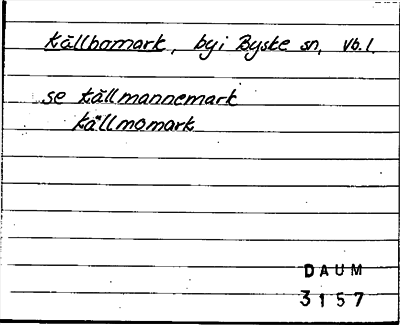 Källbomark, by i Byske sn, Vb.l.
se Källmannemark
Källmomark
DAUM
3157